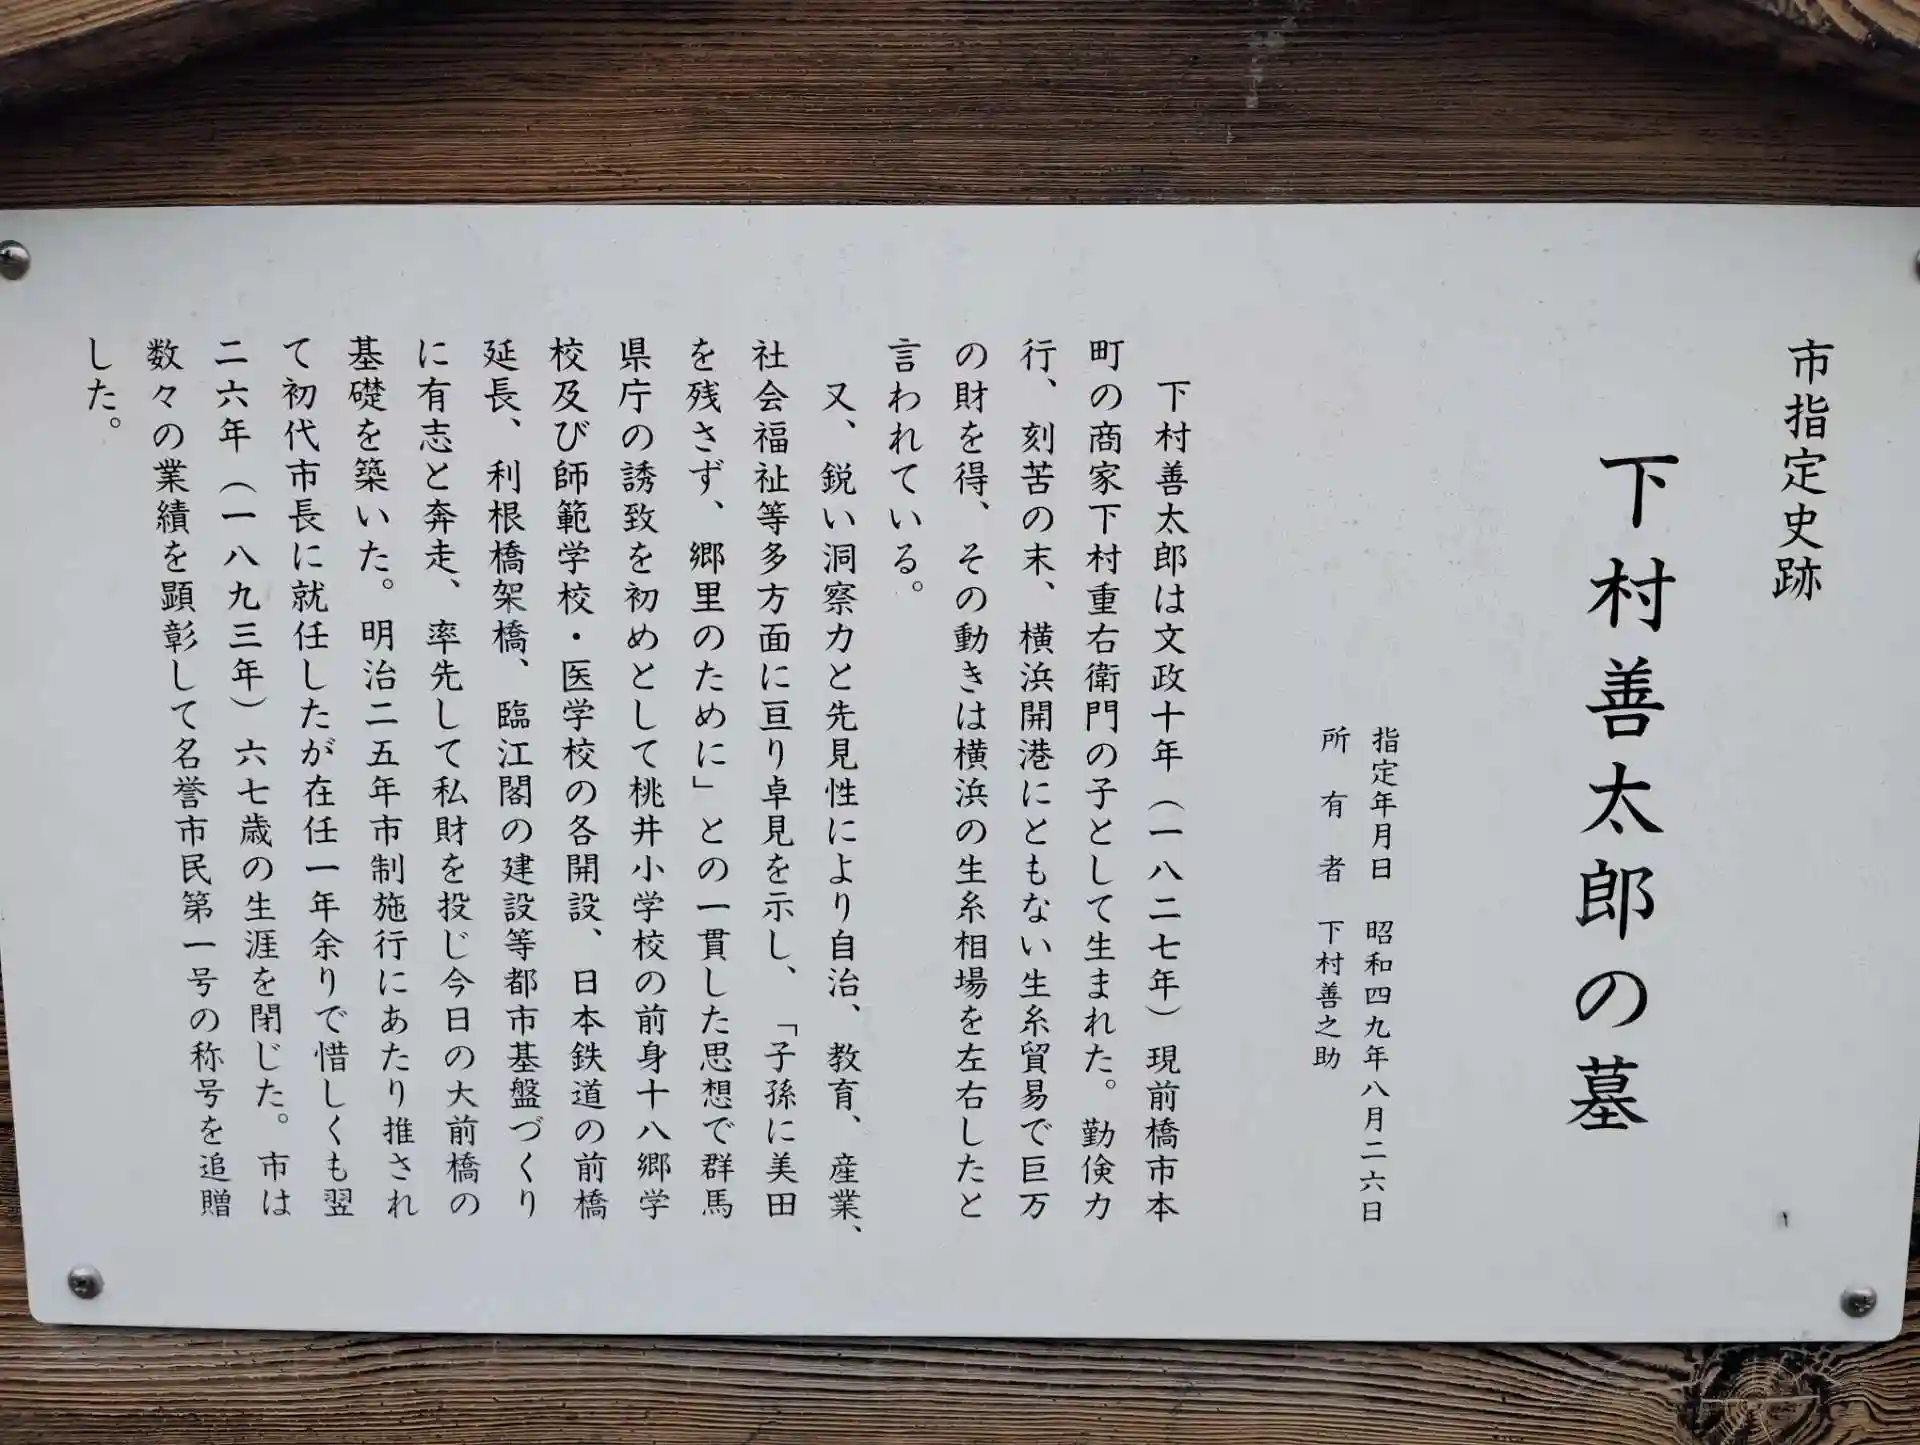 市指定史跡
下村善太郎の墓
指定年月日 昭和四九年八月二六日
所有者 下村善之助
下村善太郎は文政十年（一八二七年）現前橋市本
町の商家下村重右衛門の子として生まれた。勤倹力
行、刻苦の末、横浜開港にともない生糸貿易で巨万
の財を得、その動きは横浜の生糸相場を左右したと
言われている。
又、鋭い洞察力と先見性により自治、教育、産業、
社会福祉等多方面に亘り卓見を示し、「子孫に美田
を残さず、郷里のために」との一貫した思想で群馬
県庁の誘致を初めとして桃井小学校の前身十八郷学
校及び師範学校・医学校の各開設、日本鉄道の前橋
延長、利根橋架橋、臨江閣の建設等都市基盤づくり
に有志と奔走、率先して私財を投じ今日の大前橋の
基礎を築いた。明治二五年市制施行にあたり推され
て初代市長に就任したが在任一年余りで惜しくも翌
二六年（一八九三年）六七歳の生涯を閉じた。市は
数々の業績を顕彰して名誉市民第一号の称号を追贈
した。